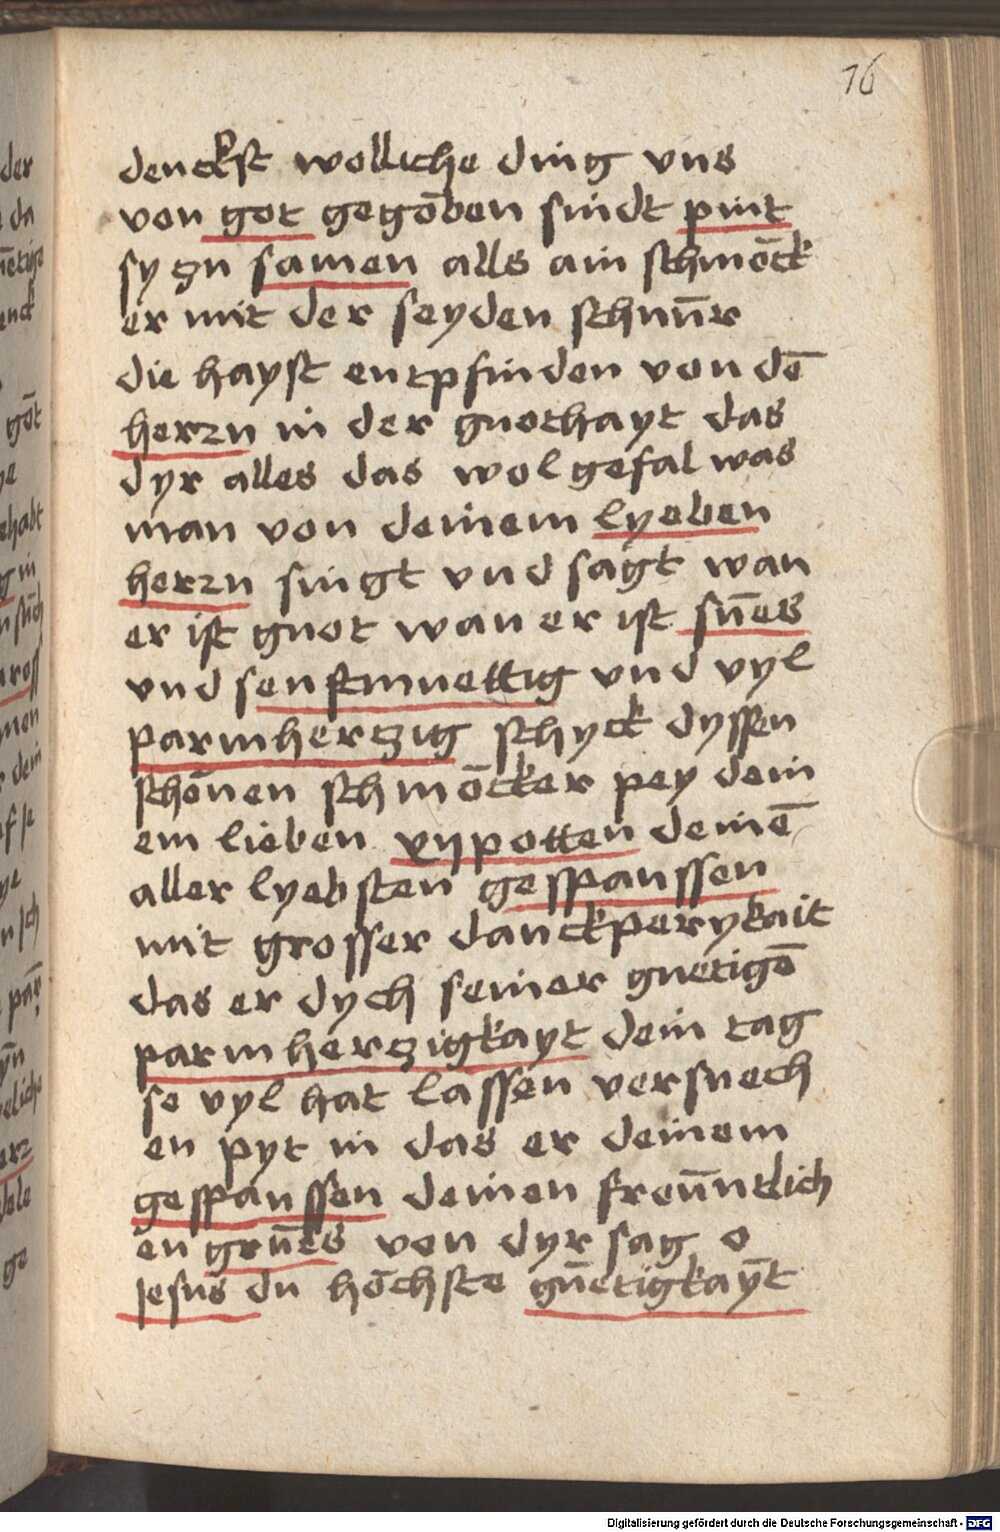 76
denckst wolliche ding vns
von got gegōben sindt pint
sy zu samen alls ain schmȫck
er mit der seyden schnūr
die hayst entpfinden von dē
herzn in der guothayt das
dyr alles das wol gefal was
man von deinem lyeben
herzn singt vnd sagt wan
er ist guot wan er ist sūes
vnd senftmuettig vnd vyl
parmhertzig schyck dyssen
schōnen schmōcker pey dein
em lieben xijpotten deinē
aller lyebsten gesspanssen
mit grosser danckperykait
das er dych seiner guetigē
parmhertzigkayt dein tag
se vyl hat lassen versuech
en pyt in das er deinem
gesspanssen deinen freūntlich
en grūes von dyr sag o
Jesus du hōchste gūetigkaȳt
der
da
enck
gōt
ye
ehabt
g in
men
r dein
ye
herz
ge
Digitalisierung gefördert durch die Deutsche Forschungsgemeinschaft - DFG